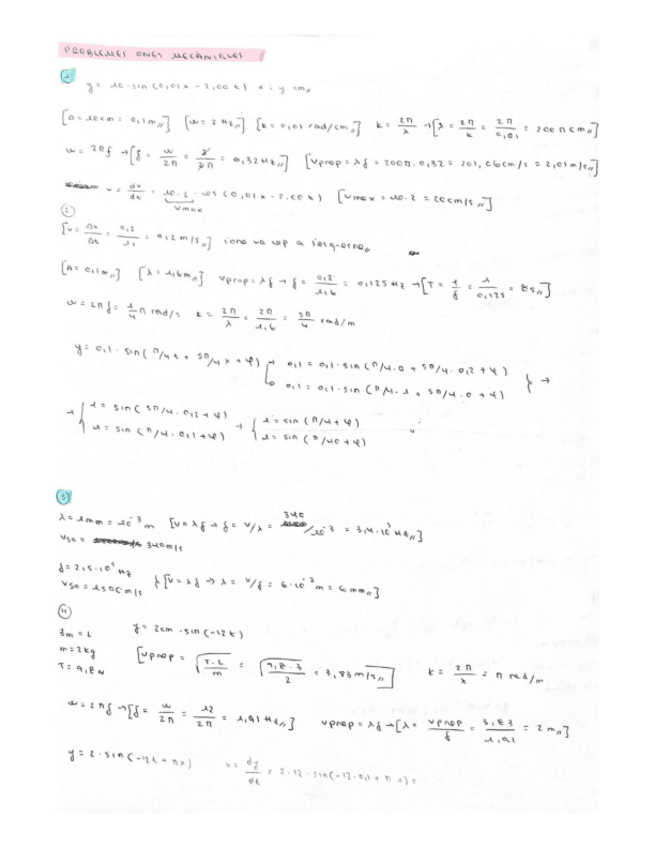 PROBLEMES ONES MECÀNIQUES
1
y = 10 · sin (0,01x - 2,00 t) x i y cm,,
[A = 10cm = 0,1m,,] [w = 2 Hz,,] [k = 0,01 rad/cm,,] k = 2π/λ → [λ = 2π/k = 2π/0,01 = 200π cm,,]
w = 2πf → [f = w/2π = 2/2π = 0,32Hz,,] [Vprop = λf = 200π · 0,32 = 201,06cm/s = 2,01m/s,,]
v = dx/dt = 10·2 · cos (0,01x - 2,00 t) [Vmax = 10·2 = 20cm/s,,]
Vmax
2
[v = Δx/Δt = 0,2/1 = 0,2m/s,,] ona va cap a l'esquerra,,
[A = 0,1m,,] [λ = 1,6m,,] Vprop = λf → f = 0,2/1,6 = 0,125Hz → [T = 1/f = 1/0,125 = 8s,,]
w = 2πf = 1/4 π rad/s k = 2π/λ = 2π/1,6 = 5π/4 rad/m
y = 0,1 · sin (π/4 t + 5π/4 x + φ) → 0,1 = 0,1 · sin (π/4 · 0 + 5π/4 · 0,2 + φ)
0,1 = 0,1 · sin (π/4 · 1 + 5π/4 · 0 + φ) } →
→ { 1 = sin (5π/4 · 0,2 + φ) → { 1 = sin (π/4 + φ)
1 = sin (π/4 · 0,1 + φ) 1 = sin (π/40 + φ)
3
λ = 1mm = 10⁻³ m [v = λf → f = v/λ = 340/10⁻³ = 3,4·10⁵ Hz,,]
Vso = 340m/s
f = 2,5·10⁵ Hz
Vso = 1500m/s } [v = λf → λ = v/f = 6·10⁻³ m = 6mm,,]
4
3m = L y = 2cm · sin (-12t)
m = 2kg
T = 9,8N
[Vprop = √(T·L/m) = √(9,8·3/2) = 3,83m/s,,] k = 2π/λ = π rad/m
w = 2πf → [f = w/2π = 12/2π = 1,91Hz,,] Vprop = λf → [λ = Vprop/f = 3,83/1,91 = 2m,,]
y = 2 · sin (-12t + πx) v = dy/dt = 2·12 · sin (-12·0,1 + πx) =